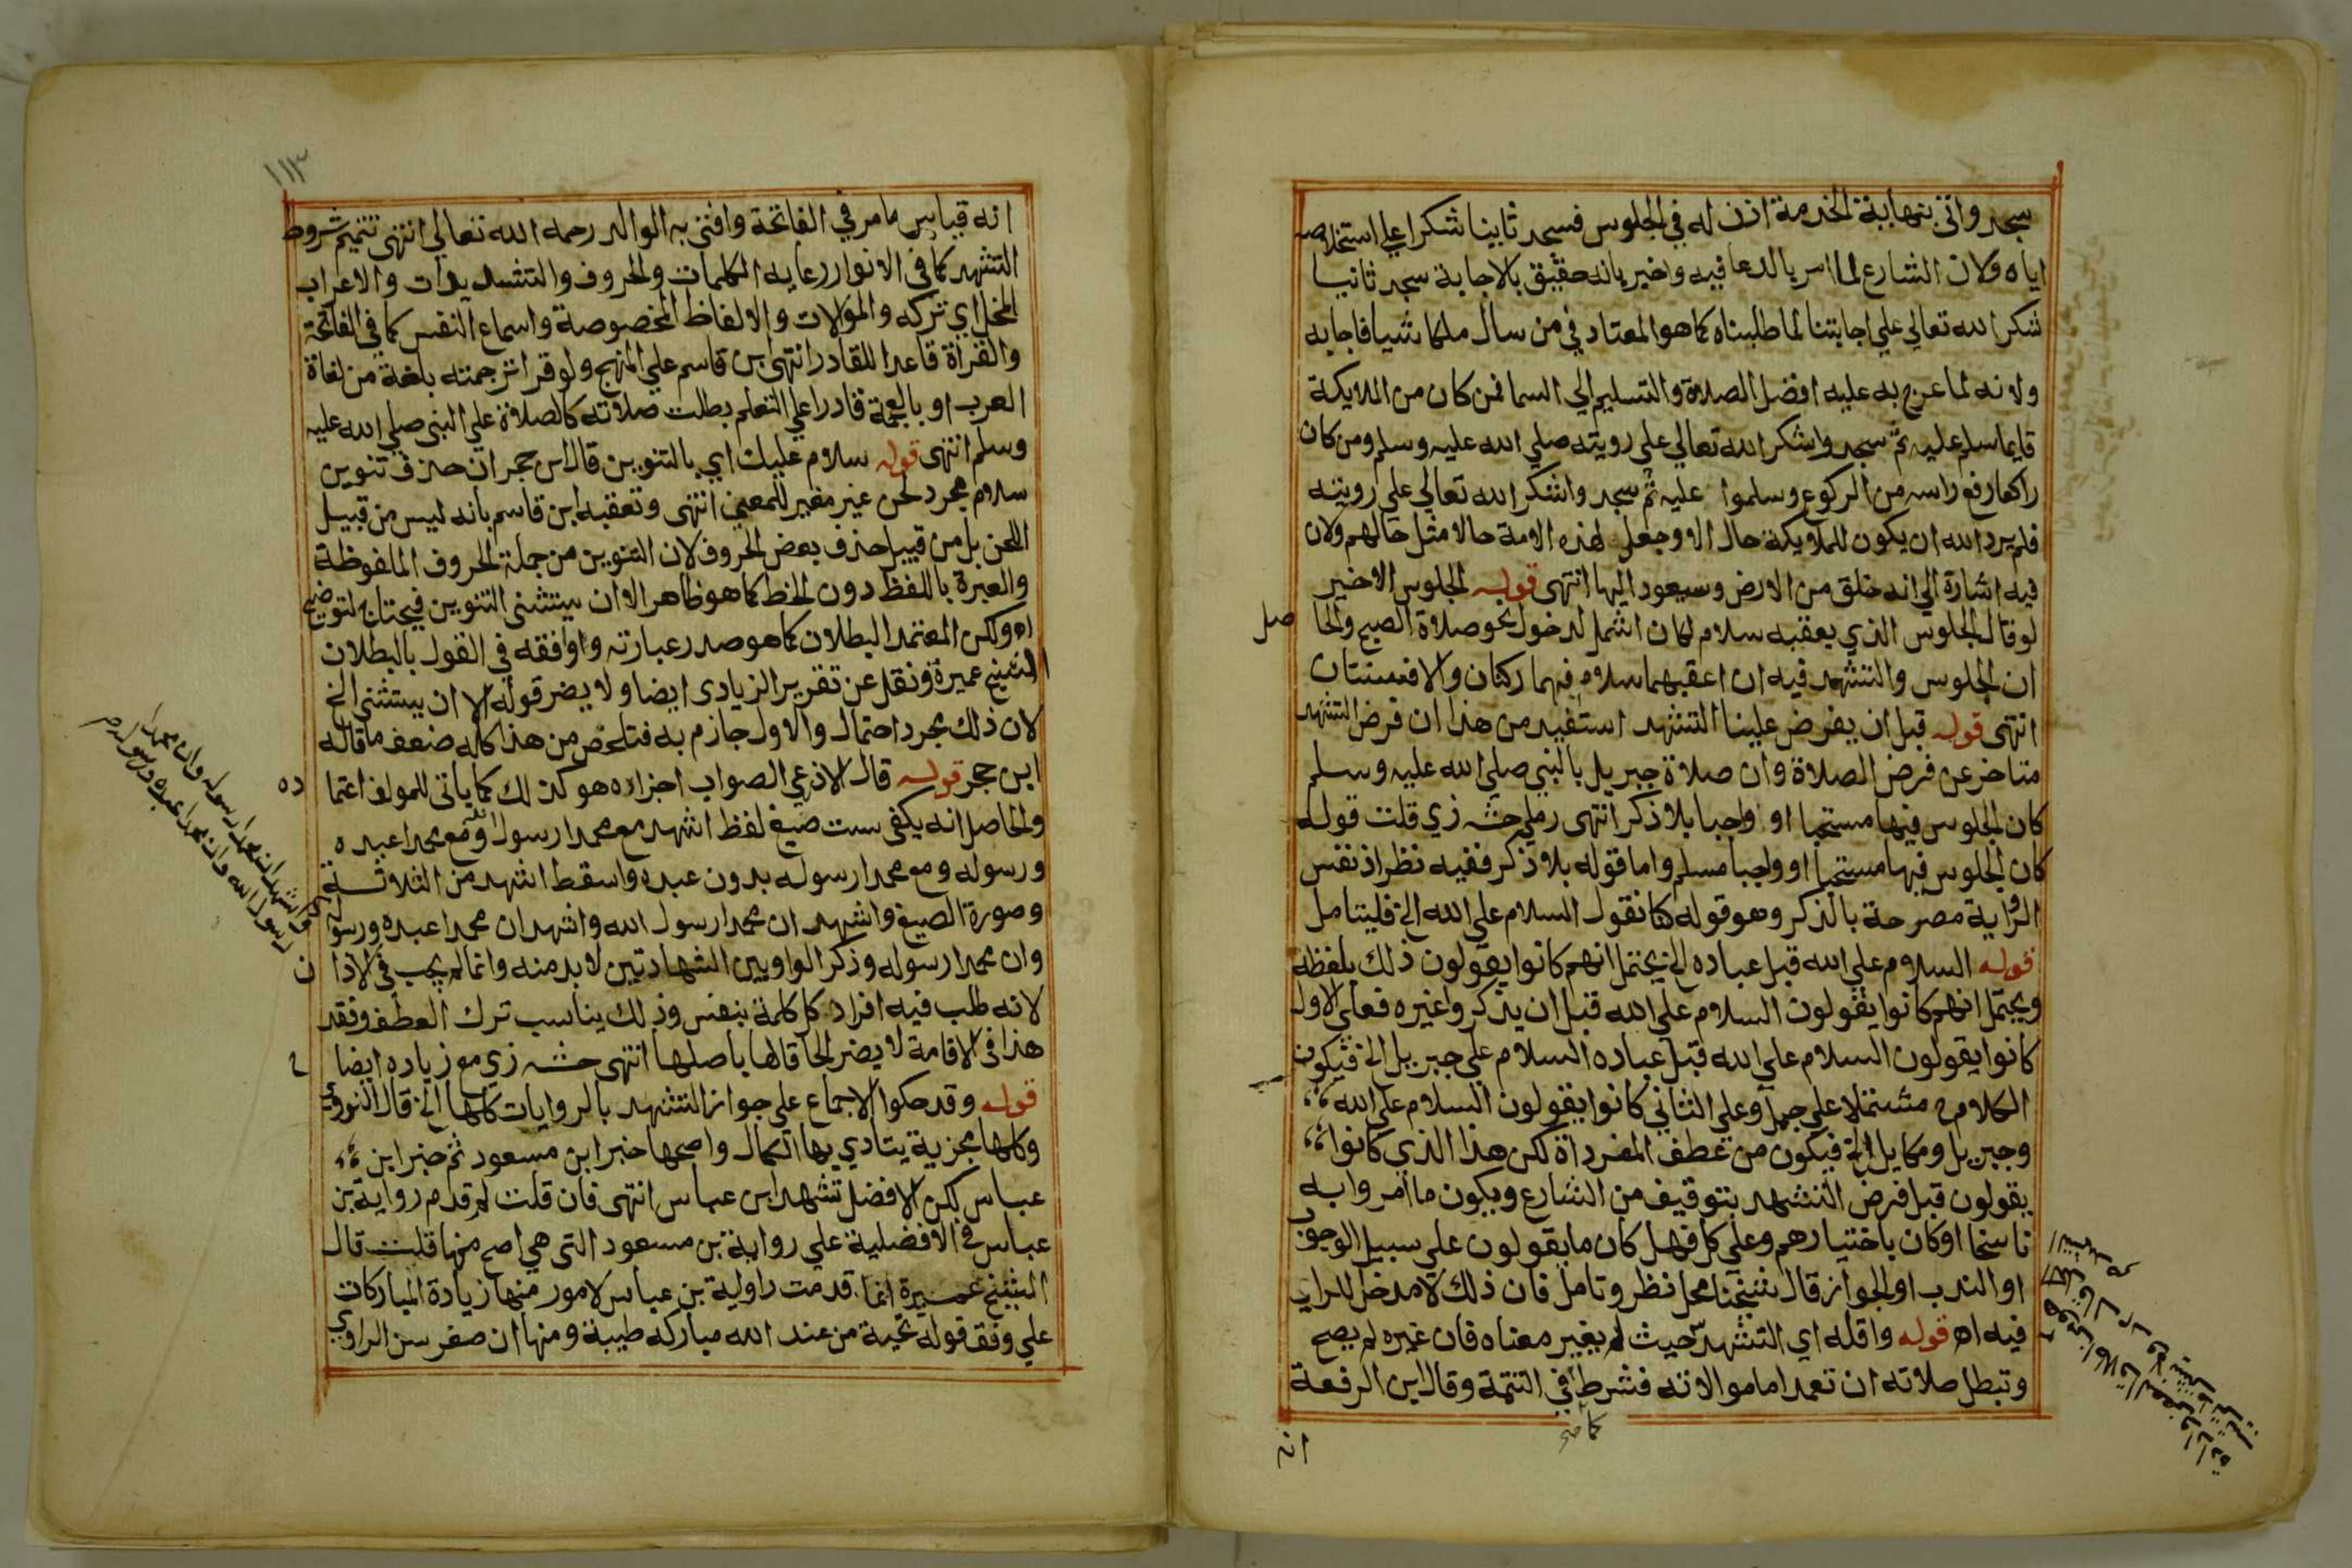 سجد واتى بنهاية الخدمة اذن له في الجلوس فسجد ثانيا شكرا علي استخلاصه
اياه ولان الشارع لما امر بالدعا فيه واخبر بانه حقيق بالاجابة سجد ثانيا
شكرا لله تعالي علي اجابتنا لما طلبناه كما هو المعتاد في من سال ملكا شيا فاجابه
ولانه لما عرج به عليه افضل الصلاة والتسليم الي السما فمن كان من الملايكة
قايما سلم عليه ثم سجد واشكر الله تعالي علي رويته صلي الله عليه وسلم ومن كان
راكعا رفع راسه من الركوع وسلموا عليه ثم سجد واشكر الله تعالي علي رويته
فلم يرد الله ان يكون للملايكة حال الا وجعل لهذه الامة حالا مثل حالهم ولان
فيه اشارة الي انه خلق من الارض وسيعود اليها انتهى قوله الجلوس الاخير
لو قال الجلوس الذي يعقبه سلام لكان اشمل لدخول نحو صلاة الصبح والحا
صل
ان الجلوس والتشهد فيه ان اعقبهما سلام فهما ركنان والا فسنتان
انتهى قوله قبل ان يفرض علينا التشهد استفيد من هذا ان فرض التشهد
متاخر عن فرض الصلاة وان صلاة جبريل بالنبي صلي الله عليه وسلم
كان الجلوس فيها مستحبا او واجبا بلا ذكر انتهى رملي حشه زي قلت قوله
كان الجلوس فيها مستحبا او واجبا مسلم واما قوله بلا ذكر ففيه نظر اذ نفس
الرواية مصرحة بالذكر وهو قوله كنا نقول السلام علي الله الخ فليتامل
قوله السلام علي الله قبل عباده الخ يحتمل انهم كانوا يقولون ذلك بلفظه
ويحتمل انهم كانوا يقولون السلام علي الله قبل ان يذكروا غيره فعلي الاول
كانوا يقولون السلام علي الله قبل عباده السلام علي جبريل الخ فيكون
الكلام مشتملا علي جمل وعلي الثاني كانوا يقولون السلام علي الله
وجبريل وميكايل الخ فيكون من عطف المفرداة لكن هذا الذي كانوا
يقولون قبل فرض التشهد بتوقيف من الشارع ويكون ما امروا به
ناسخا او كان باختيارهم وعلي كل فهل كان ما يقولون علي سبيل الوجوب
او الندب او الجواز قال شيخنا محل نظر وتامل فان ذلك لا مدخل للراي
فيه اه قوله واقله اي التشهد حيث لم يغير معناه فان غيره لم يصح
وتبطل صلاته ان تعمد اما موالاته فشرط في التتمة وقال ابن الرفعة
انه
١١٣
انه قياس ما مر في الفاتحة وافتى به الوالد رحمه الله تعالي انتهى تتميم شروط
التشهد كما في الانوار رعاية الكلمات والحروف والتشديدات والاعراب
المخل اي تركه والموالات والالفاظ المخصوصة واسماع النفس كما في الفاتحة
والقراة قاعدا للقادر انتهى بن قاسم علي المنهج ولو قرا ترجمته بلغة من لغاة
العرب او بالعجمة قادرا علي التعلم بطلت صلاته كالصلاة علي النبي صلي الله عليه
وسلم انتهى قوله سلام عليك اي بالتنوين قال ابن حجر ان حذف تنوين
سلام مجرد لحن غير مغير للمعني انتهى وتعقبه ابن قاسم بانه ليس من قبيل
اللحن بل من قبيل حذف بعض الحروف لان التنوين من جملة الحروف الملفوظة
والعبرة باللفظ دون الخط كما هو ظاهر الا ان يستثنى التنوين فيحتاج لتوضيح
اه ولكن المعتمد البطلان كما هو صدر عبارته واوافقه في القول بالبطلان
الشيخ عميرة ونقل عن تقرير الزيادى ايضا ولا يضر قوله الا ان يستثنى الخ
لان ذلك مجرد احتمال والاول جازم به فتلخص من هذا كله ضعف ما قاله
ابن حجر قوله قال الاذرعي الصواب اجزاه هو كذلك كما ياتى للمولف اعتما
ده
والحاصل انه يكفي ست صيغ لفظ اشهد مع محمدا رسول الله ومع محمدا عبده
ورسوله ومع محمدا رسوله بدون عبده واسقط اشهد من الثلاثة
وصورة الصيغ واشهد ان محمدا رسول الله واشهد ان محمدا عبده ورسوله
وان محمدا رسوله وذكر الواو بين الشهادتين لا بد منه وانما لم يجب في الاذا
ن
لانه طلب فيه افراد كل كلمة بنفس وذلك يناسب ترك العطف وفقد
هذا في الاقامة لا يضر الحاقا لها باصلها انتهى حشه زي مع زياده ايضا
قوله وقد حكوا الاجماع علي جواز التشهد بالروايات كلها الخ قال النووي
وكلها مجزية يتادي بها الكمال واصحها خبر ابن مسعود ثم خبر ابن
عباس لكن الافضل تشهد ابن عباس انتهى فان قلت لم قدم رواية بن
عباس في الافضلية علي رواية بن مسعود التى هي اصح منها قلت قال
الشيخ عميرة انما قدمت رواية بن عباس لامور منها زيادة المباركات
علي وفق قوله تحية من عند الله مباركة طيبة ومنها ان صغر سن الراوي